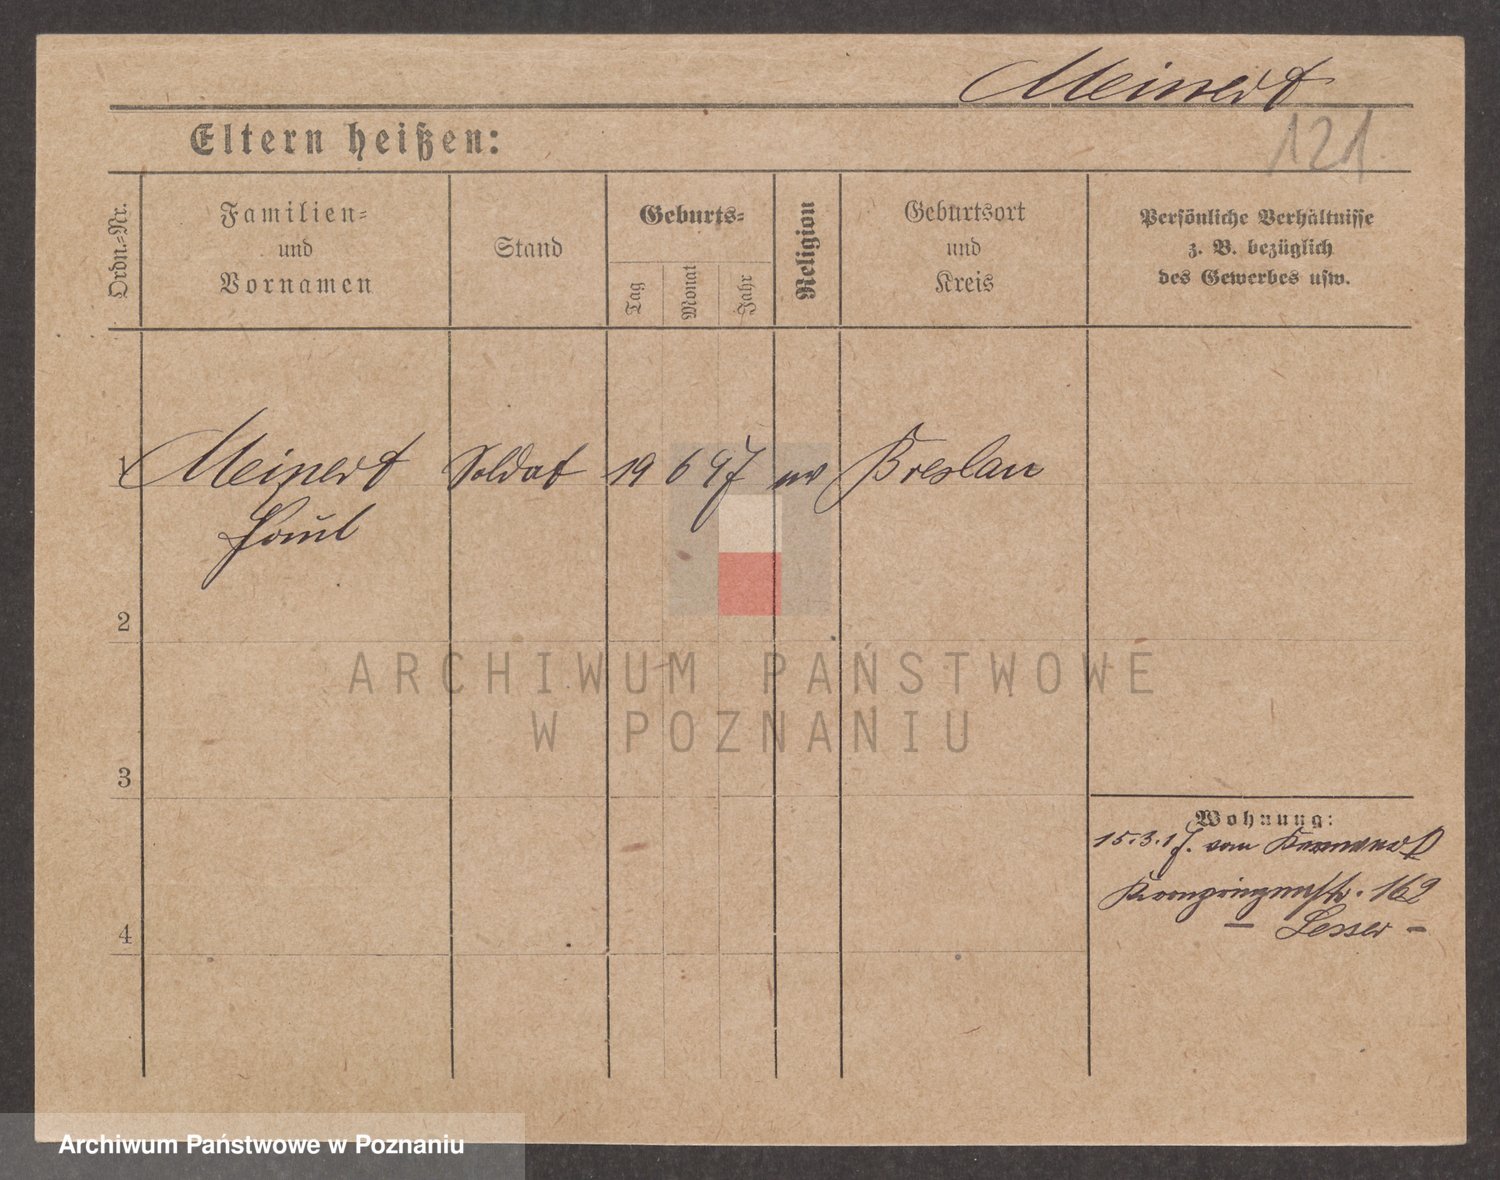 Meinert
121
Eltern heißen:
Ordn.=Nr.
Familien=
und
Vornamen
Stand
Geburts=
Tag
Monat
Jahr
Religion
Geburtsort
und
Kreis
Persönliche Verhältnisse
z. B. bezüglich
des Gewerbes usw.
1 Meinert Soldat 19 6 97 ev Breslau
Paul
2
3
4
Wohnung:
15.3.17. von
Kronprinzenstr. 162
– Lesser –
ARCHIWUM PAŃSTWOWE
W POZNANIU
Archiwum Państwowe w Poznaniu